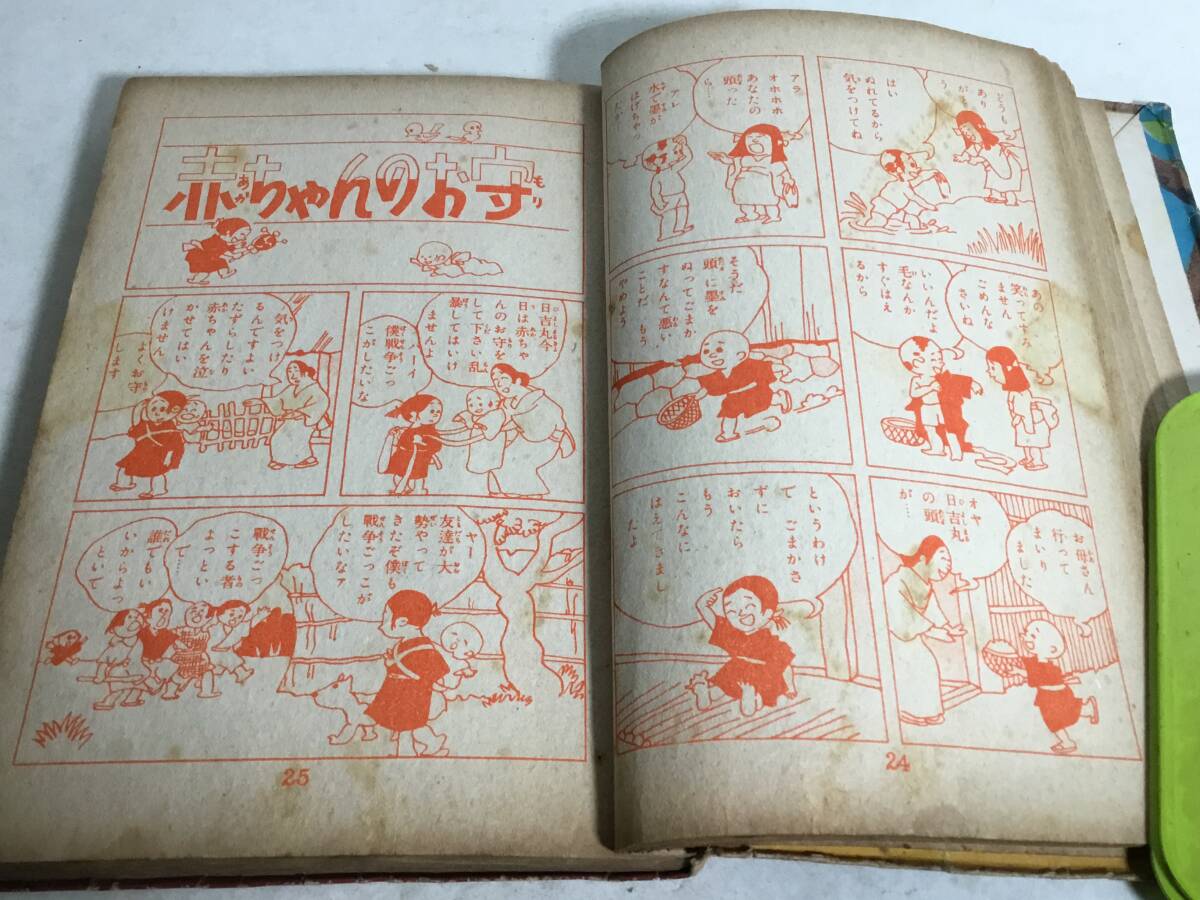 どうも
あり
がと
う
はい
ぬれてるから
気をつけてね
アラ
オホホホ
あなたの
頭った
ら…
アレ
水で墨が
はげちゃっ
たか
あの
笑ってすみ
ません
ごめんな
さいね
いいんだよ
毛なんか
すぐはえ
るから
そうだ
頭に墨を
ぬってごまか
すなんて悪い
ことだ もう
やめよう
お母さん
行って
まいり
ました
オヤ
日吉丸
の頭
が……
というわけ
で ごまかさ
ずに
おいたら
もう
こんなに
はえてきまし
たよ
24
赤ちゃんのお守
日吉丸今
日は赤ちゃ
んのお守を
して下さい乱
暴してはいけ
ませんよ
ハーイ
僕戦争ごっ
こがしたいな
気をつけ
るんですよい
たずらしたり
赤ちゃんを泣
かせてはい
けません
よくお守
します
ヤー
友達が大
勢やって
きたぞ僕も
戦争ごっこが
したいなァ
戦争ごっ
こする者
よっとい
で……
誰でもい
いからよっ
といで
25